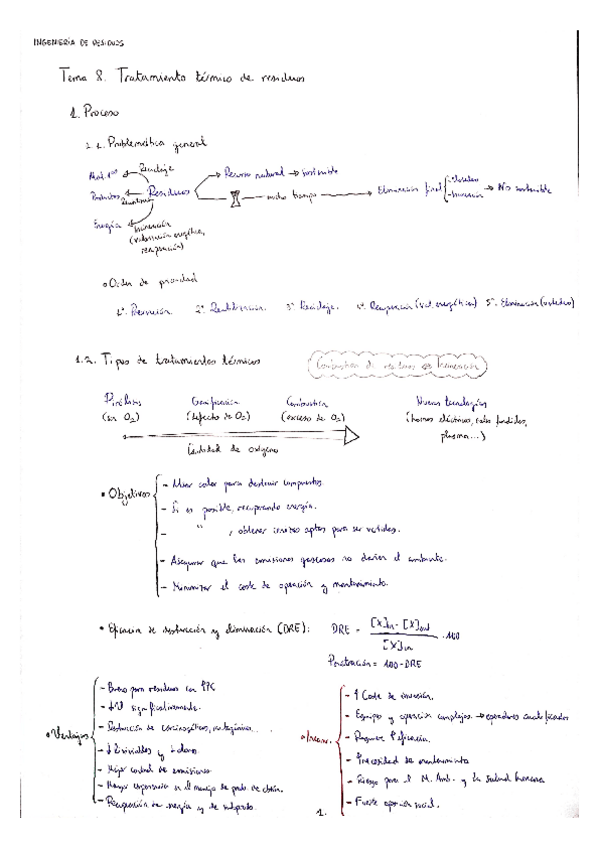 INGENIERÍA DE RESIDUOS
Tema 8. Tratamiento térmico de residuos
1. Proceso
1.1. Problemática general
Mat. 1ªˢ ← Reciclaje
Residuos → Recurso natural → sostenible
Productos ← Residuos → mucho tiempo → Eliminación final → No sostenible
Energía ← Incineración
(valorización energética,
recuperación)
• Orden de prioridad
1º. Prevención. 2º. Reutilización. 3º Reciclaje. 4º. Recuperación (val. energética) 5º. Eliminación (vertedero)
1.2. Tipos de tratamientos térmicos
Combustión de residuos es Incineración
Pirólisis Gasificación Combustión Nuevas tecnologías
(sin O₂) (defecto de O₂) (exceso de O₂) (hornos eléctricos, sales fundidas,
plasma...)
Cantidad de oxígeno
• Objetivos
- Usar calor para destruir compuestos.
- Si es posible, recuperando energía.
- " , obtener inertes aptos para ser vertidos.
- Asegurar que las emisiones gaseosas no dañen el ambiente.
- Minimizar el coste de operación y mantenimiento.
• Eficacia de destrucción y eliminación (DRE): DRE = [X]in - [X]out / [X]in · 100
Penetración = 100 - DRE
• Ventajas
- Bueno para residuos con ↑PC
- ↓V significativamente.
- Destrucción de cancerígenos, patógenos...
- ↓ Lixiviables y ↓ olores.
- Mejor control de emisiones
- Mayor experiencia en el manejo de prods. de
- Recuperación de energía y de subprods.
• Inconv.
- ↑ Coste de inversión.
- Equipo y operación complejos → operadores cualificados
- Requiere ↑ eficacia.
- Necesidad de mantenimiento
- Riesgo para el M. Amb. y la salud humana
- Fuerte oposición social.
1.